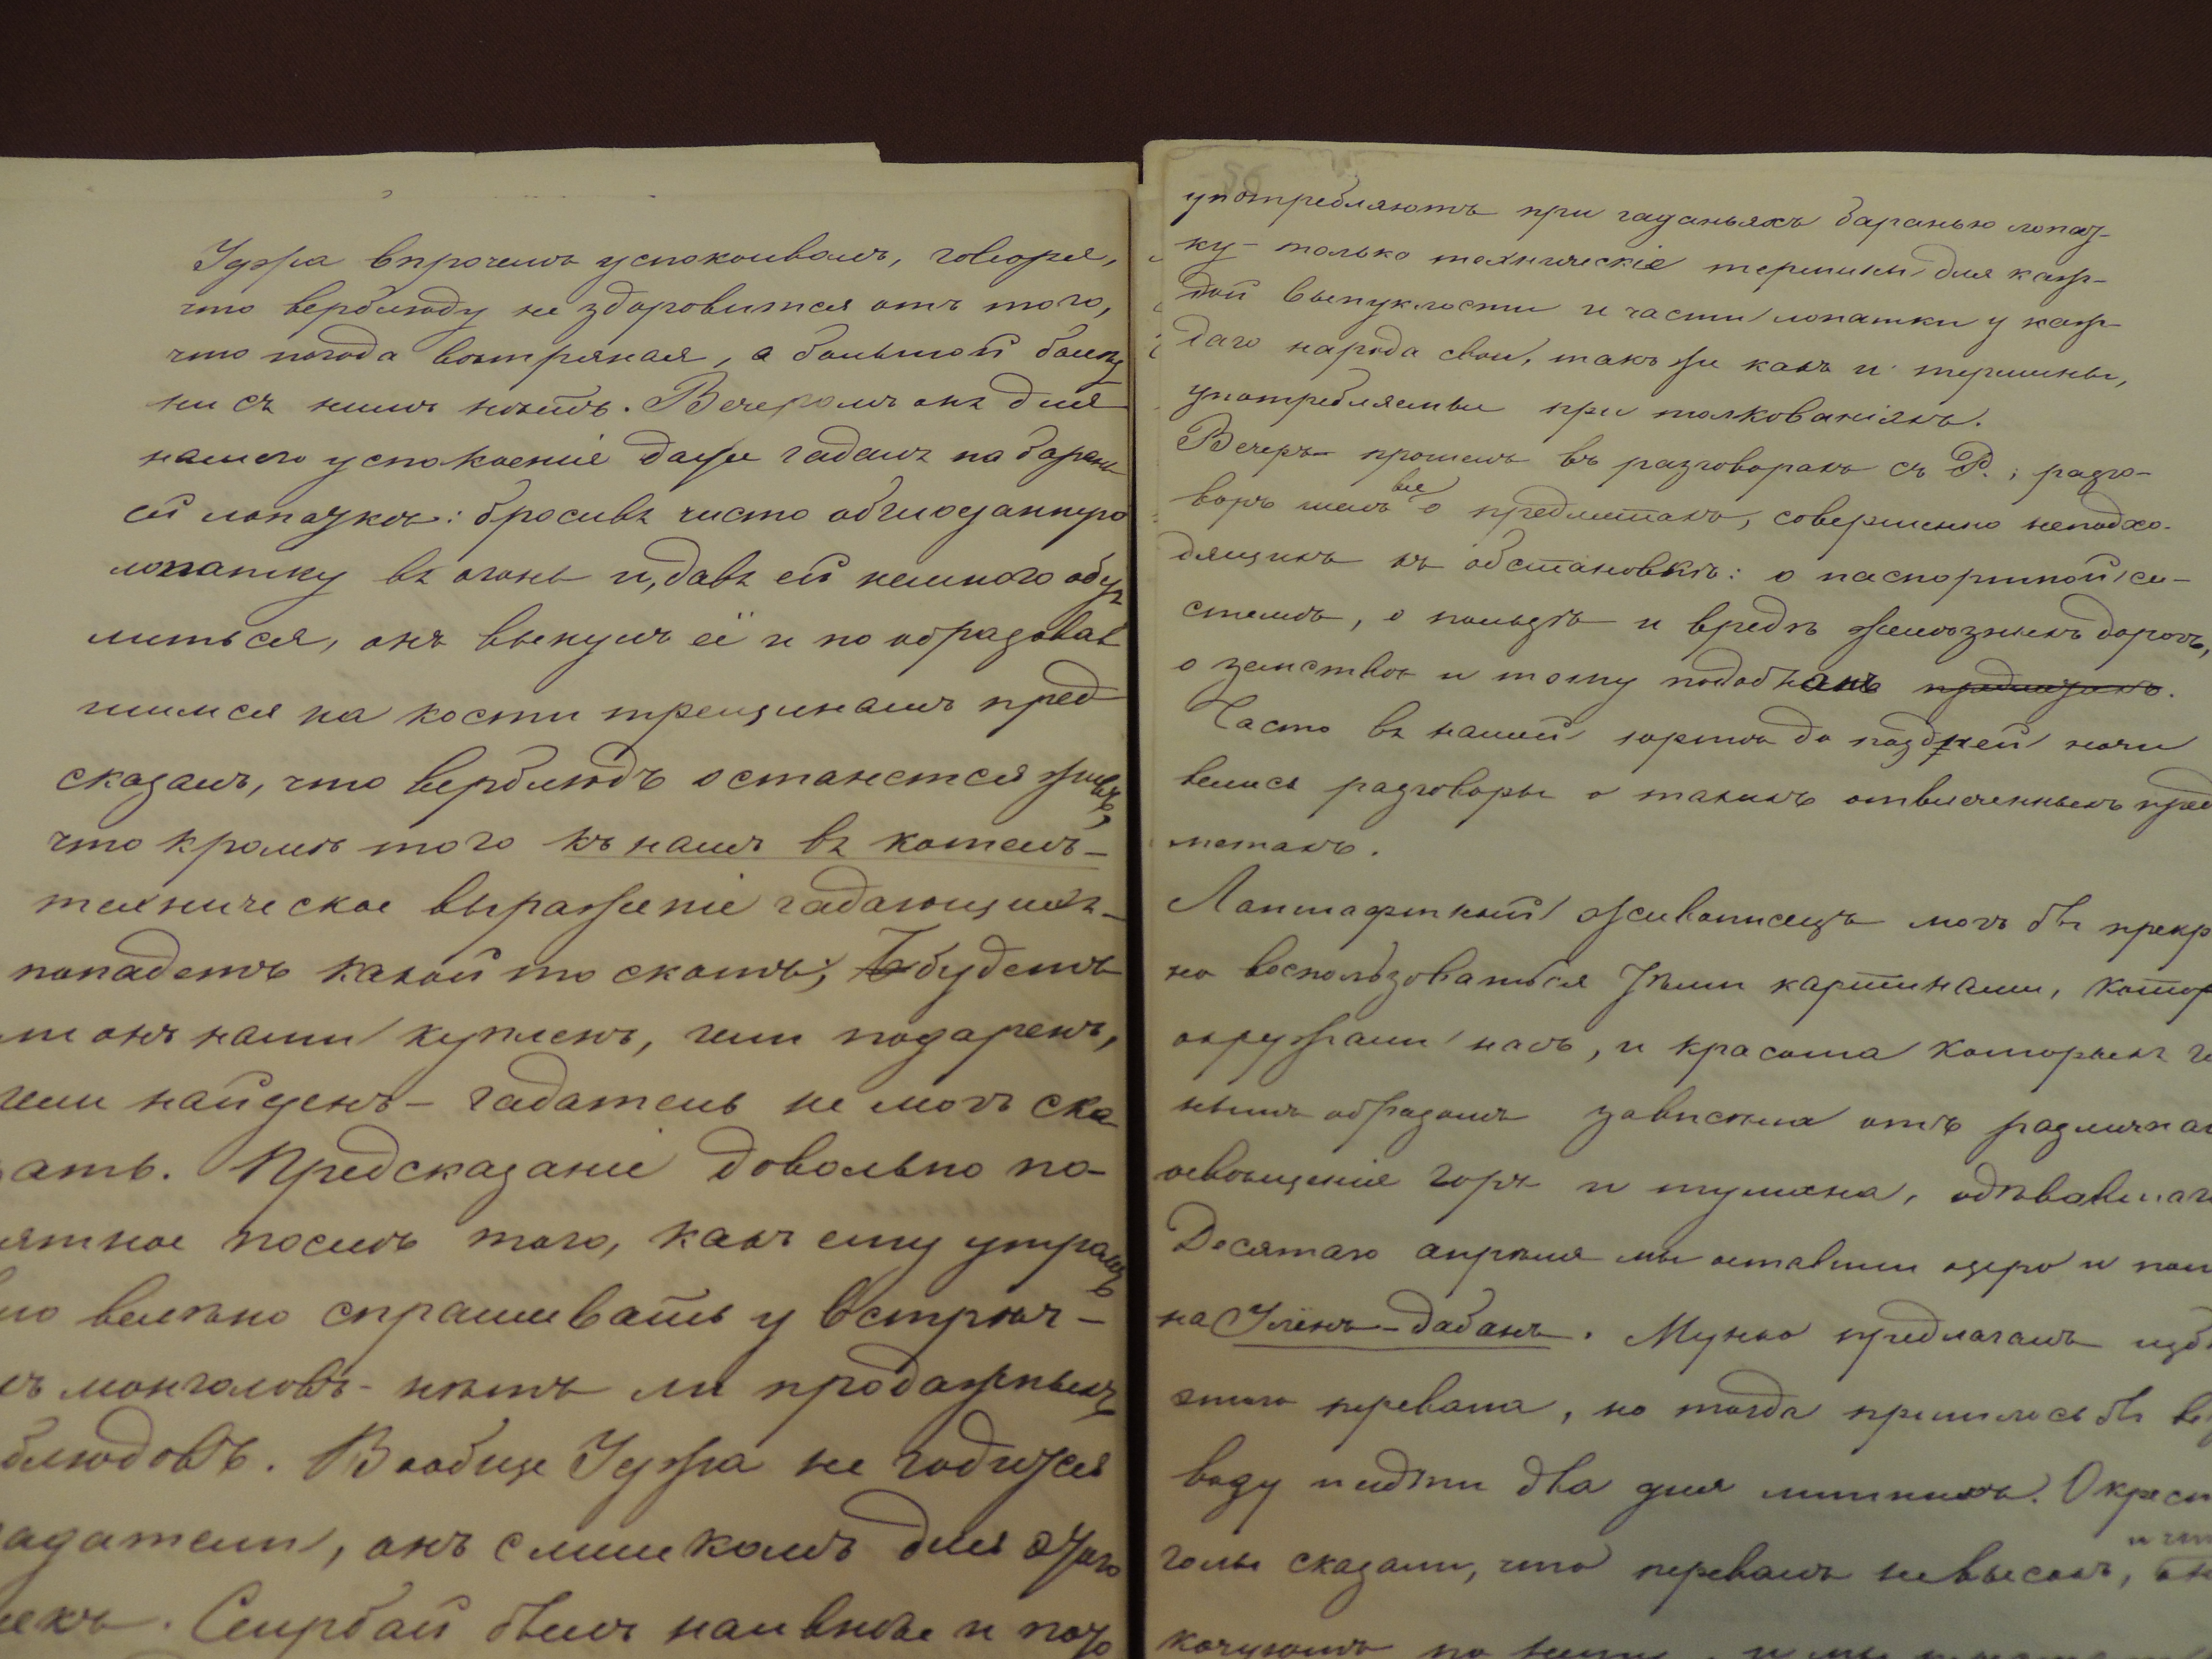 Гуджа впрочемъ успокоивалъ, говоря,
что верблюду не здоровится отъ того,
что погода вѣтряная, а большой болѣз
ни съ нимъ нѣтъ. Вечеромъ онъ для
нашего успокоенія даже гадалъ на барань
ей лопаткѣ: бросивъ чисто обглоданную
лопатку въ огонь и, давъ ей немного обуг
литься, онъ вынулъ её и по образовав
шимся на кости трещинамъ пред
сказалъ, что верблюдъ останется живъ,
что кромѣ того къ намъ въ котелъ –
техническое выраженіе гадающихъ –
попадетъ какой то скотъ; будетъ
онъ нами купленъ, или подаренъ,
или найденъ – гадатель не могъ ска
ать. Предсказаніе довольно по-
ятное послѣ того, какъ ему утромъ
но велѣно спрашивать у встрѣч-
хъ монголовъ – нѣтъ ли продажныхъ
блюдовъ. Вообще Гуджа не годится
адатели, онъ слишкомъ для этого
былъ наивнѣе и
употребляютъ при гаданьяхъ баранью лопат-
ку – только техническіе термины для каж-
дой выпуклости и части лопатки у каж
даго народа свои, такъ же какъ и термины,
употребляемые при толкованіяхъ.
Вечеръ прошелъ въ разговорахъ съ Р.; разго-
воръ шелъ все о предметахъ, совершенно неподхо-
дящихъ къ обстановкѣ: о паспортной си-
стемѣ, о пользѣ и вредѣ желѣзныхъ дорогъ,
о земствѣ и тому подобныхъ предметахъ.
Часто въ нашей юртѣ до поздней ночи
велись разговоры о такихъ отвлеченныхъ пред
метахъ.
Ландшафтный живописецъ могъ бы прекр
но воспользоваться тѣми картинами, котор
окружали насъ, и красота которыхъ г
нымъ образомъ зависѣла отъ различнаг
освѣщенія горъ и тумана, одѣвавшаго
Десятаго апрѣля мы оставили озеро и пош
на Улёнъ-дабанъ. Мунко предлагалъ изб
этого перевала, но тогда пришлось бы
воду и идти два дня лишнихъ. Окрест
голы сказали, что перевалъ невысокъ,
кочуютъ по нему